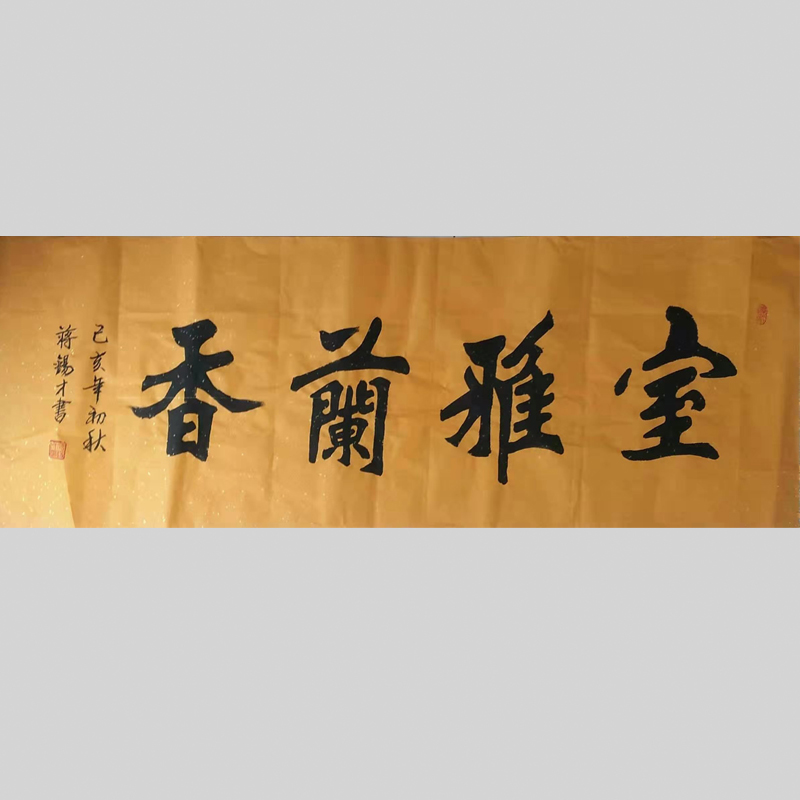 室雅蘭香
己亥年初秋
蔣錫才書